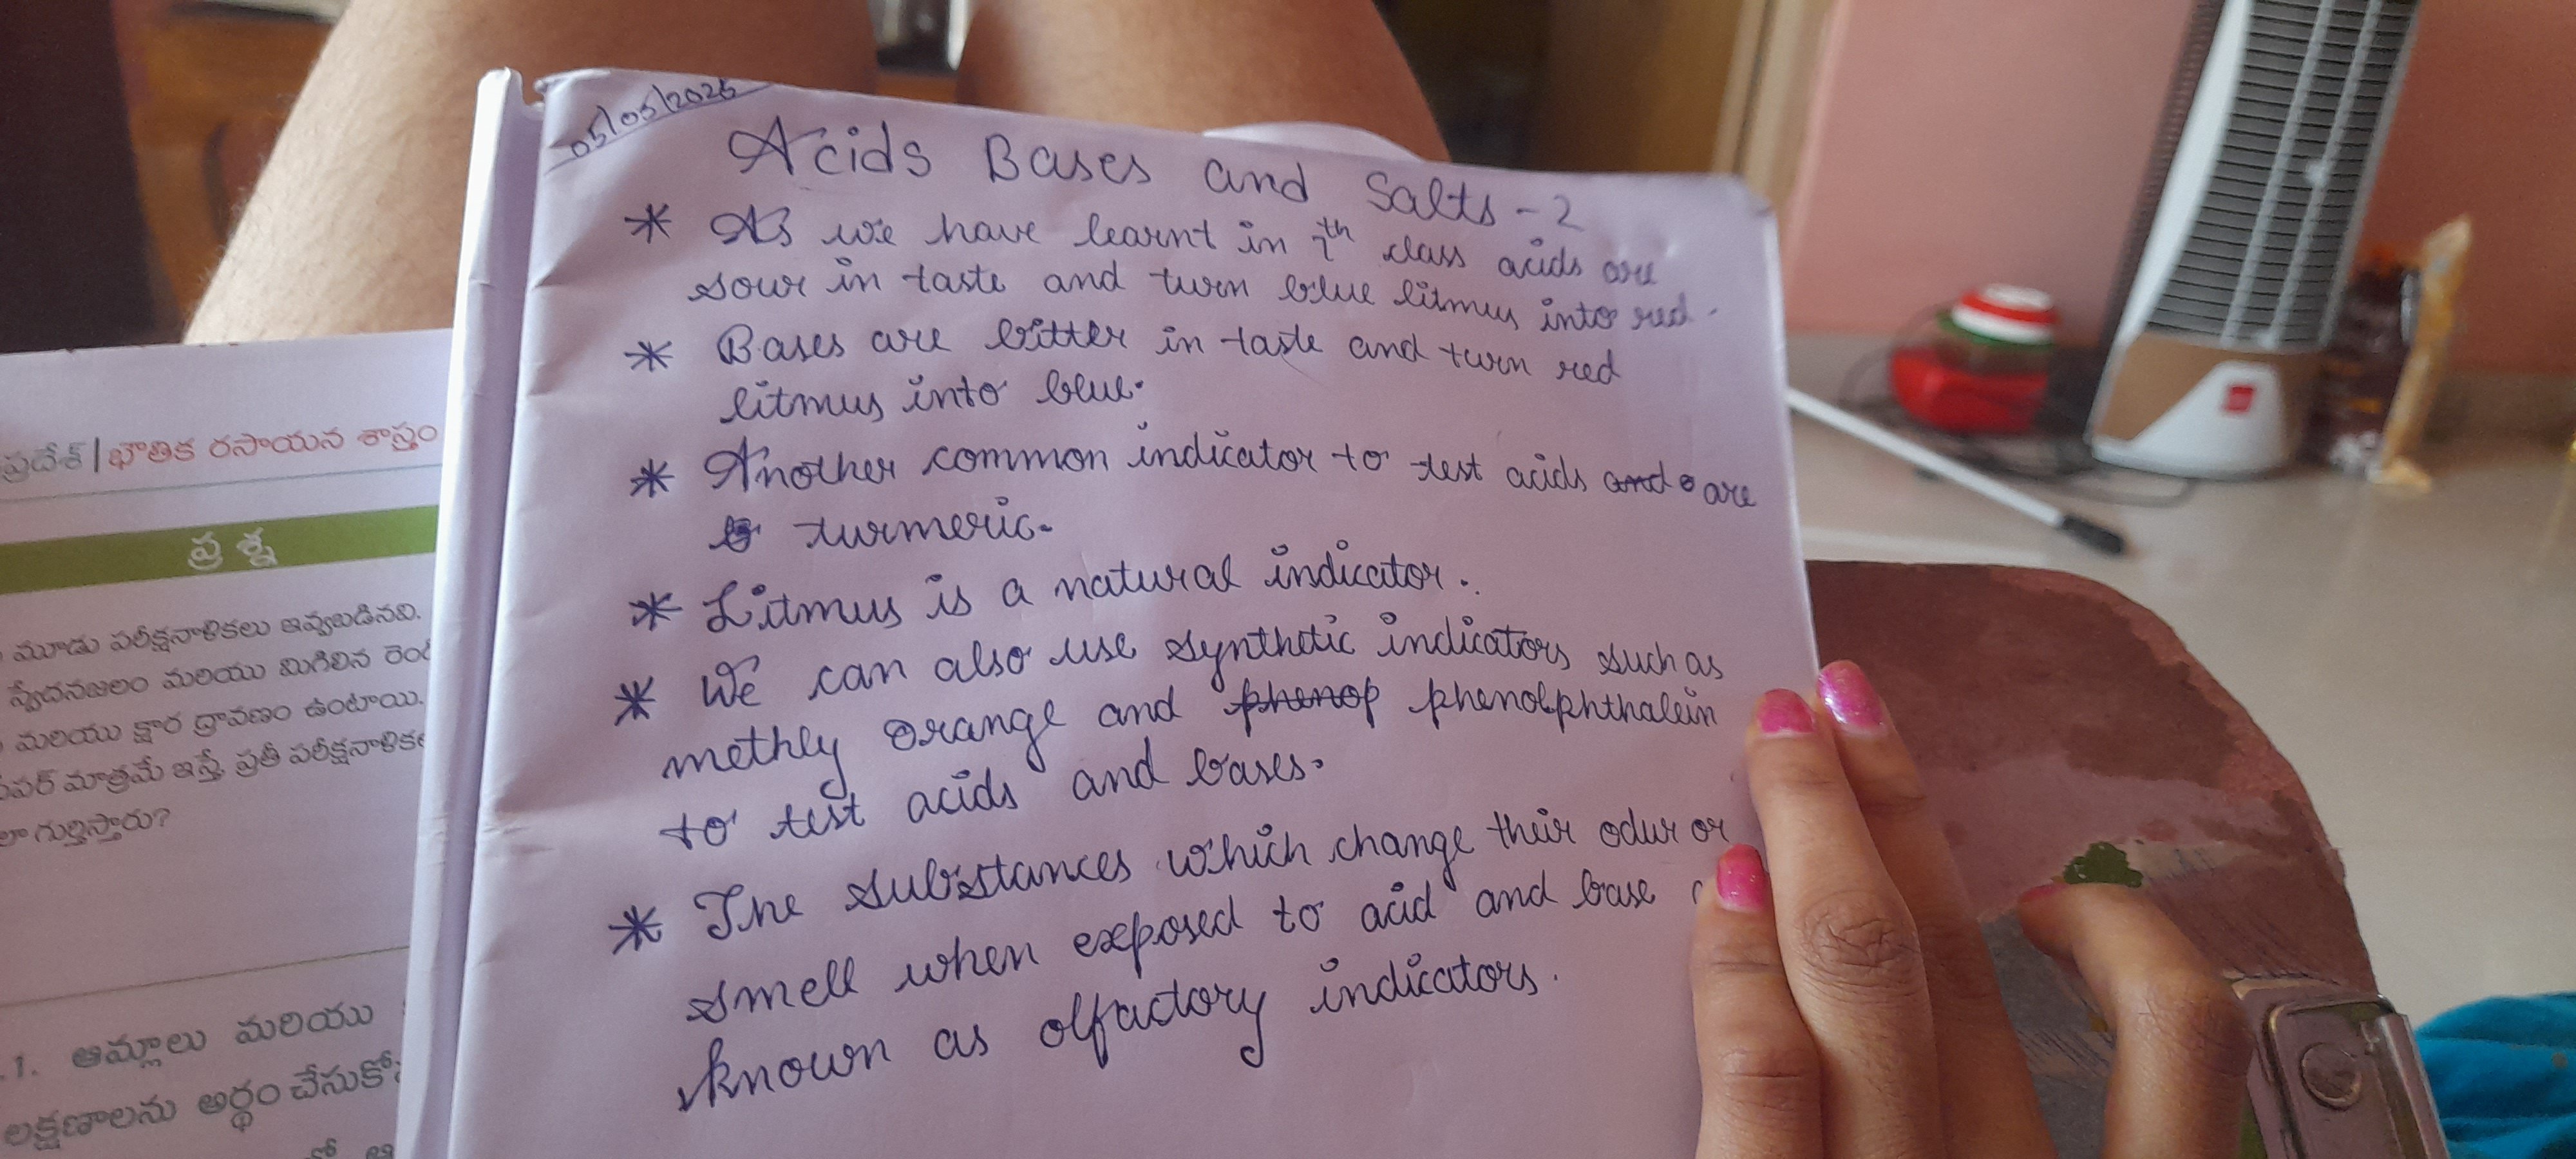 05/05/2026
Acids Bases and Salts - 2
* As we have learnt in 7th class acids are
sour in taste and turn blue litmus into red.
* Bases are bitter in taste and turn red
litmus into blue.
* Another common indicator to test acids and are
turmeric.
* Litmus is a natural indicator.
* We can also use synthetic indicators such as
methly orange and phenop phenolphthalein
to test acids and bases.
* The substances which change their odur or
smell when exposed to acid and base
known as olfactory indicators.
ప్రదేశ్ | భౌతిక రసాయన శాస్త్రం
ప్రశ్న
మూడు పరీక్షనాళికలు ఇవ్వబడినవి.
స్వేదనజలం మరియు మిగిలిన
మరియు క్షార ద్రావణం ఉంటాయి.
మాత్రమే ఇస్తే, ప్రతీ
గుర్తిస్తారు?
.1. ఆమ్లాలు మరియు
లక్షణాలను అర్థం